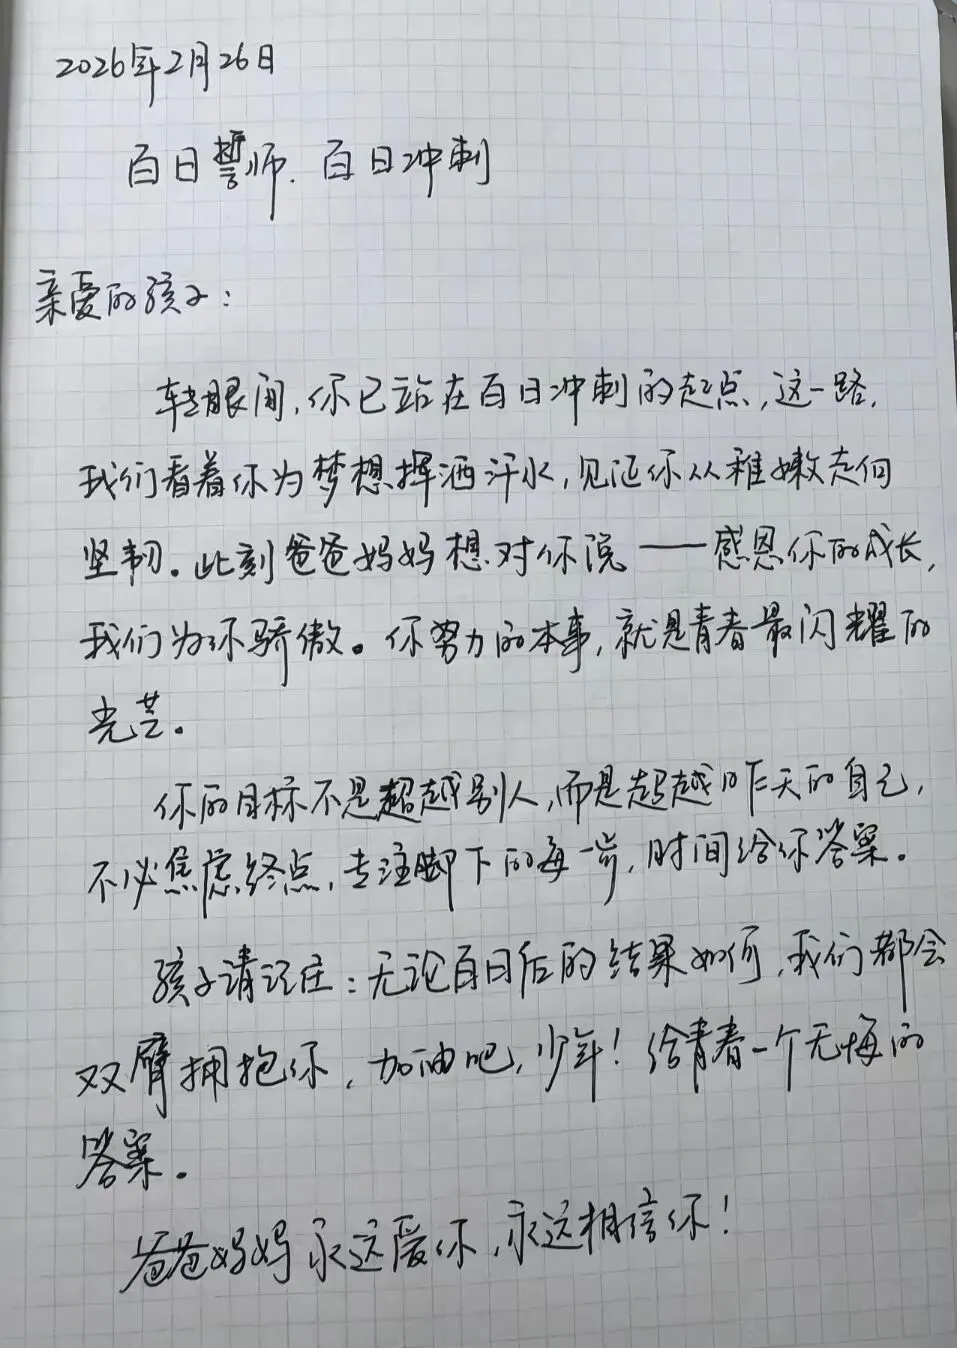 2026年2月26日
百日誓师.百日冲刺
亲爱的孩子:
转眼间,你已站在百日冲刺的起点,这一路,
我们看着你为梦想挥洒汗水,见证你从稚嫩走向
坚韧。此刻爸爸妈妈想对你说——感恩你的成长,
我们为你骄傲。你努力的本事,就是青春最闪耀的
光芒。
你的目标不是超越别人,而是超越昨天的自己,
不必焦虑终点,专注脚下的每一步,时间给你答案。
孩子请记住:无论百日后的结果如何,我们都会
双臂拥抱你,加油吧,少年!给青春一个无悔的
答案。
爸爸妈妈永远爱你,永远相信你!